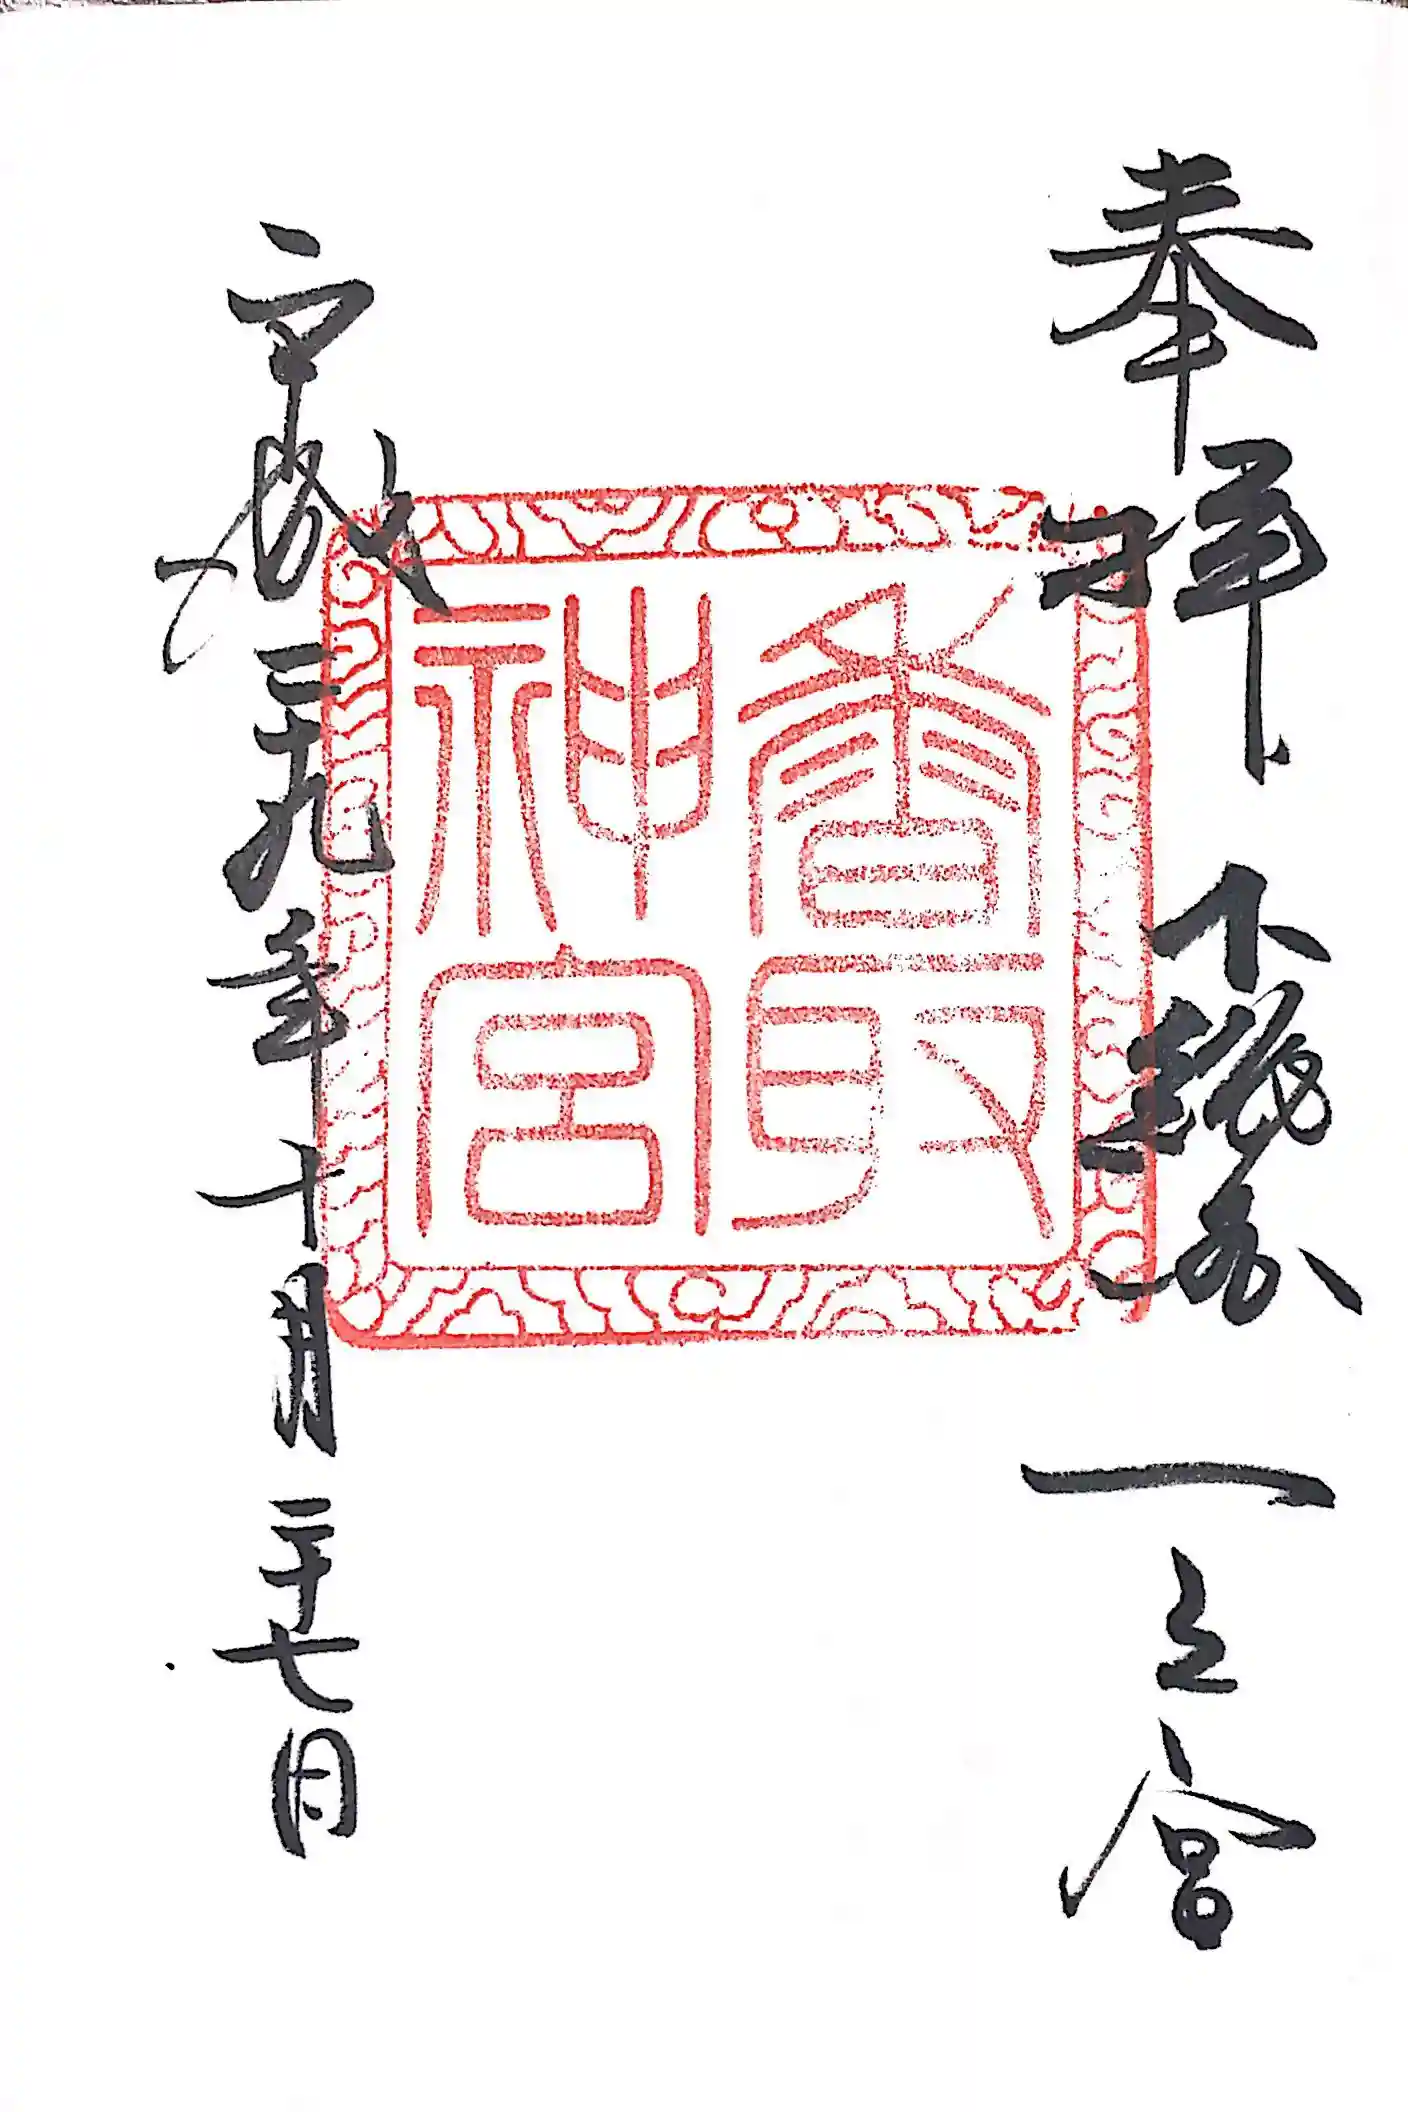 奉拝 下総国 一之宮
香取
神宮
平成二十九年十月二十七日